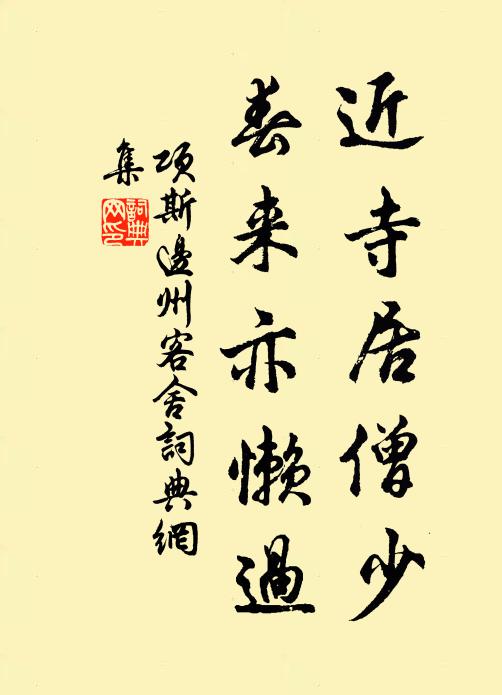 近寺居僧少
春来亦懒過
項斯邊州客舍詞典網
集
詞典
网印